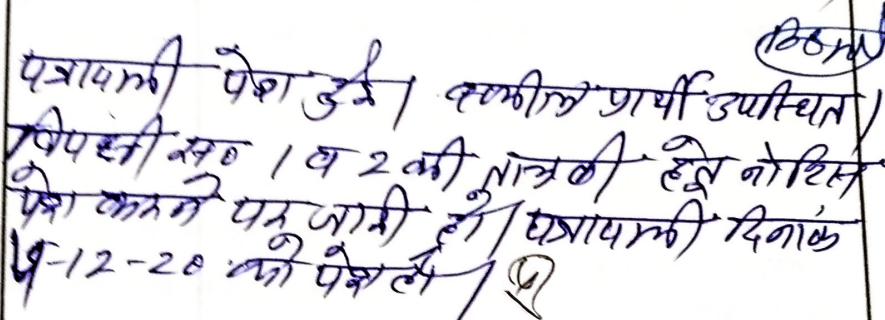 पत्रावली पेश हुई। वकील प्रार्थी उपस्थित।
विपक्षी सं० 1 व 2 की तामिली हेतु नोटिस
पेश करने पर जारी हो। पत्रावली दिनांक
-12-20 को पेश हो।